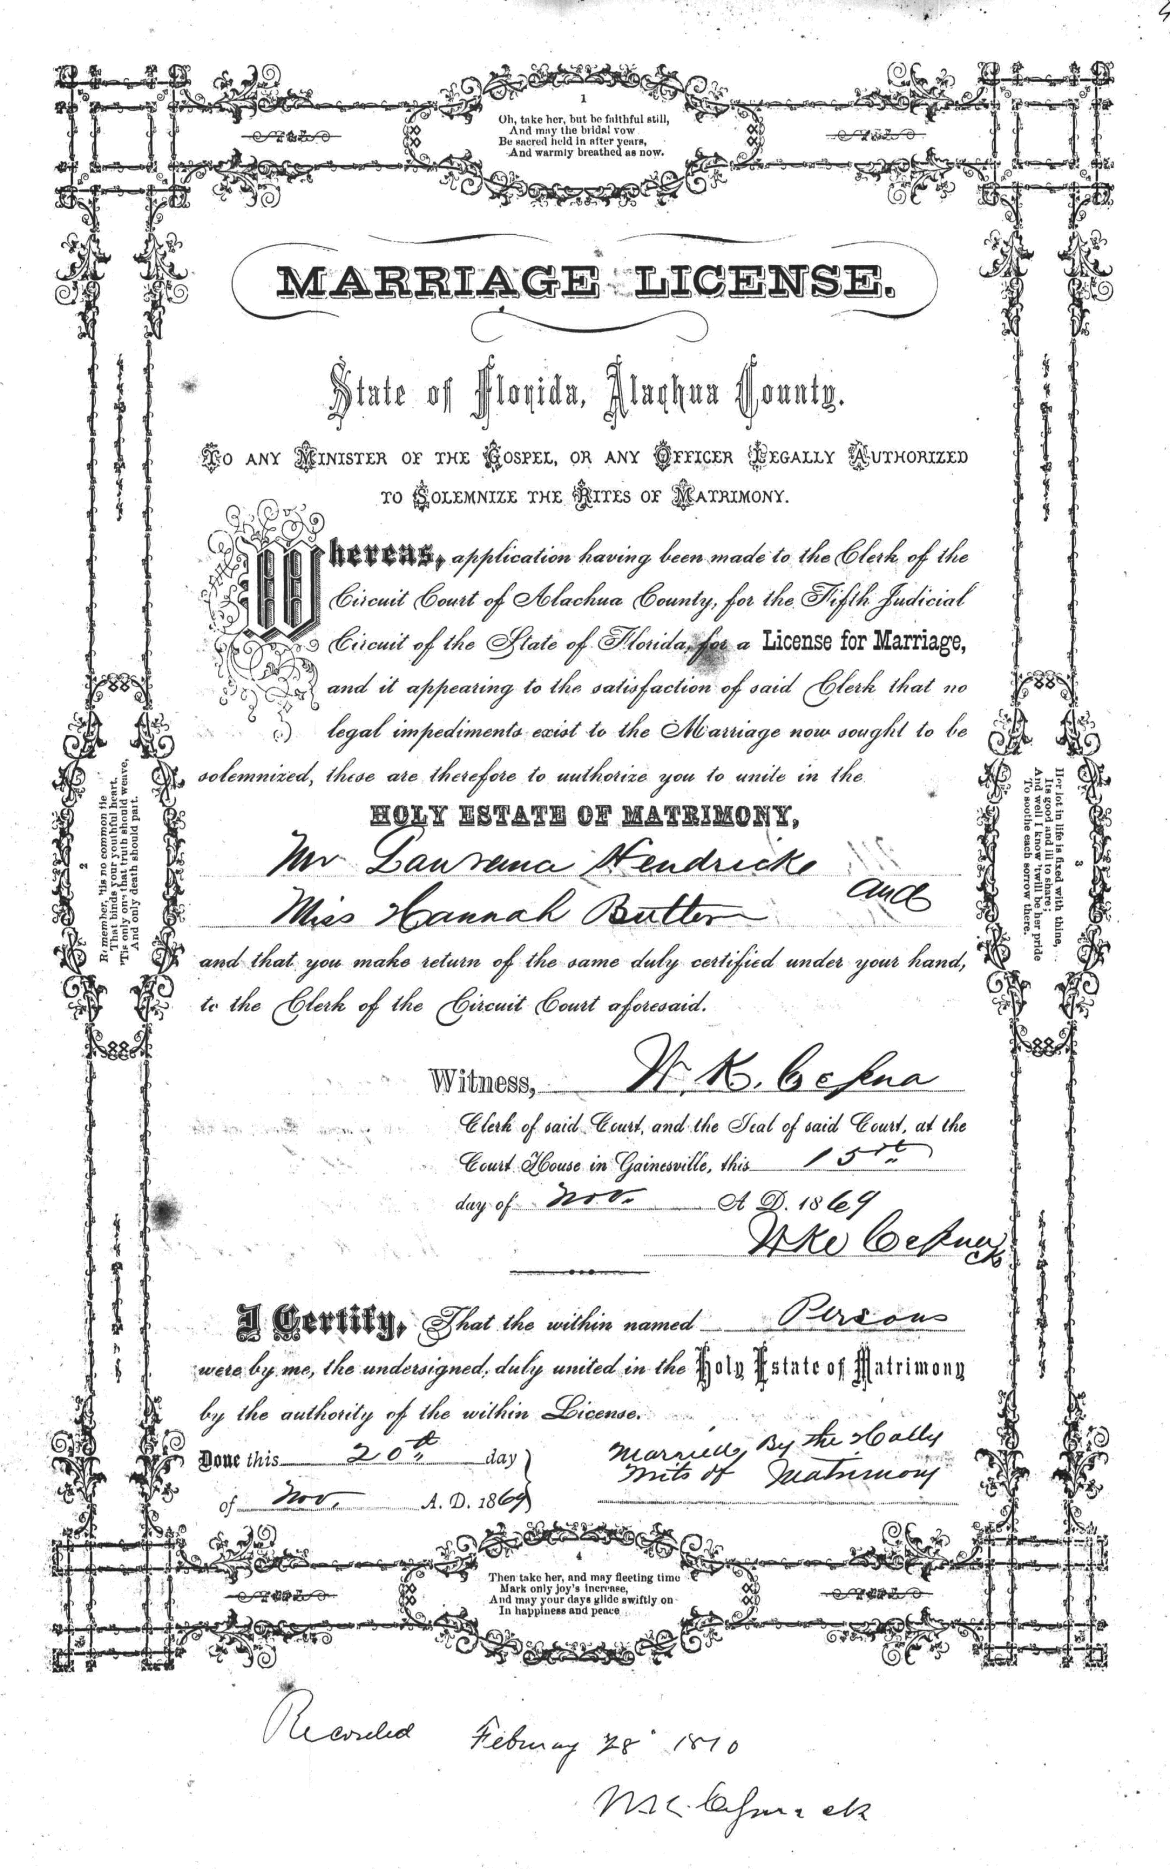 1
Oh, take her, but be faithful still,
And may the bridal vow
Be sacred held in after years,
And warmly breathed as now.
MARRIAGE LICENSE.
State of Florida, Alachua County.
TO ANY MINISTER OF THE GOSPEL, OR ANY OFFICER LEGALLY AUTHORIZED
TO SOLEMNIZE THE RITES OF MATRIMONY.
Whereas, application having been made to the Clerk of the
Circuit Court of Alachua County, for the Fifth Judicial
Circuit of the State of Florida, for a License for Marriage,
and it appearing to the satisfaction of said Clerk that no
legal impediments exist to the Marriage now sought to be
solemnized, these are therefore to authorize you to unite in the
HOLY ESTATE OF MATRIMONY,
Mr Laurence Hendricks
and
Miss Hannah Butler
and that you make return of the same duly certified under your hand,
to the Clerk of the Circuit Court aforesaid.
2
Remember, 'tis no common tie
That binds your youthful heart,
'Tis only one that truth should weave,
And only death should part.
3
Her lot in life is fixed with thine,
Its good and ill to share;
And well I know 'twill be her pride
To soothe each sorrow there.
Witness, W. K. Cessna
Clerk of said Court, and the Seal of said Court, at the
Court House in Gainesville, this 15th
day of Nov. A D. 1869
WK Cessna
Clk
I Certify, That the within named Persons
were by me, the undersigned, duly united in the Holy Estate of Matrimony
by the authority of the within License.
Done this 20th day
of Nov. A. D. 1869
Married By the Holly
of Matrimony
4
Then take her, and may fleeting time
Mark only joy's increase,
And may your days glide swiftly on
In happiness and peace
Recorded February 28 1870
W.K. Cessna clk